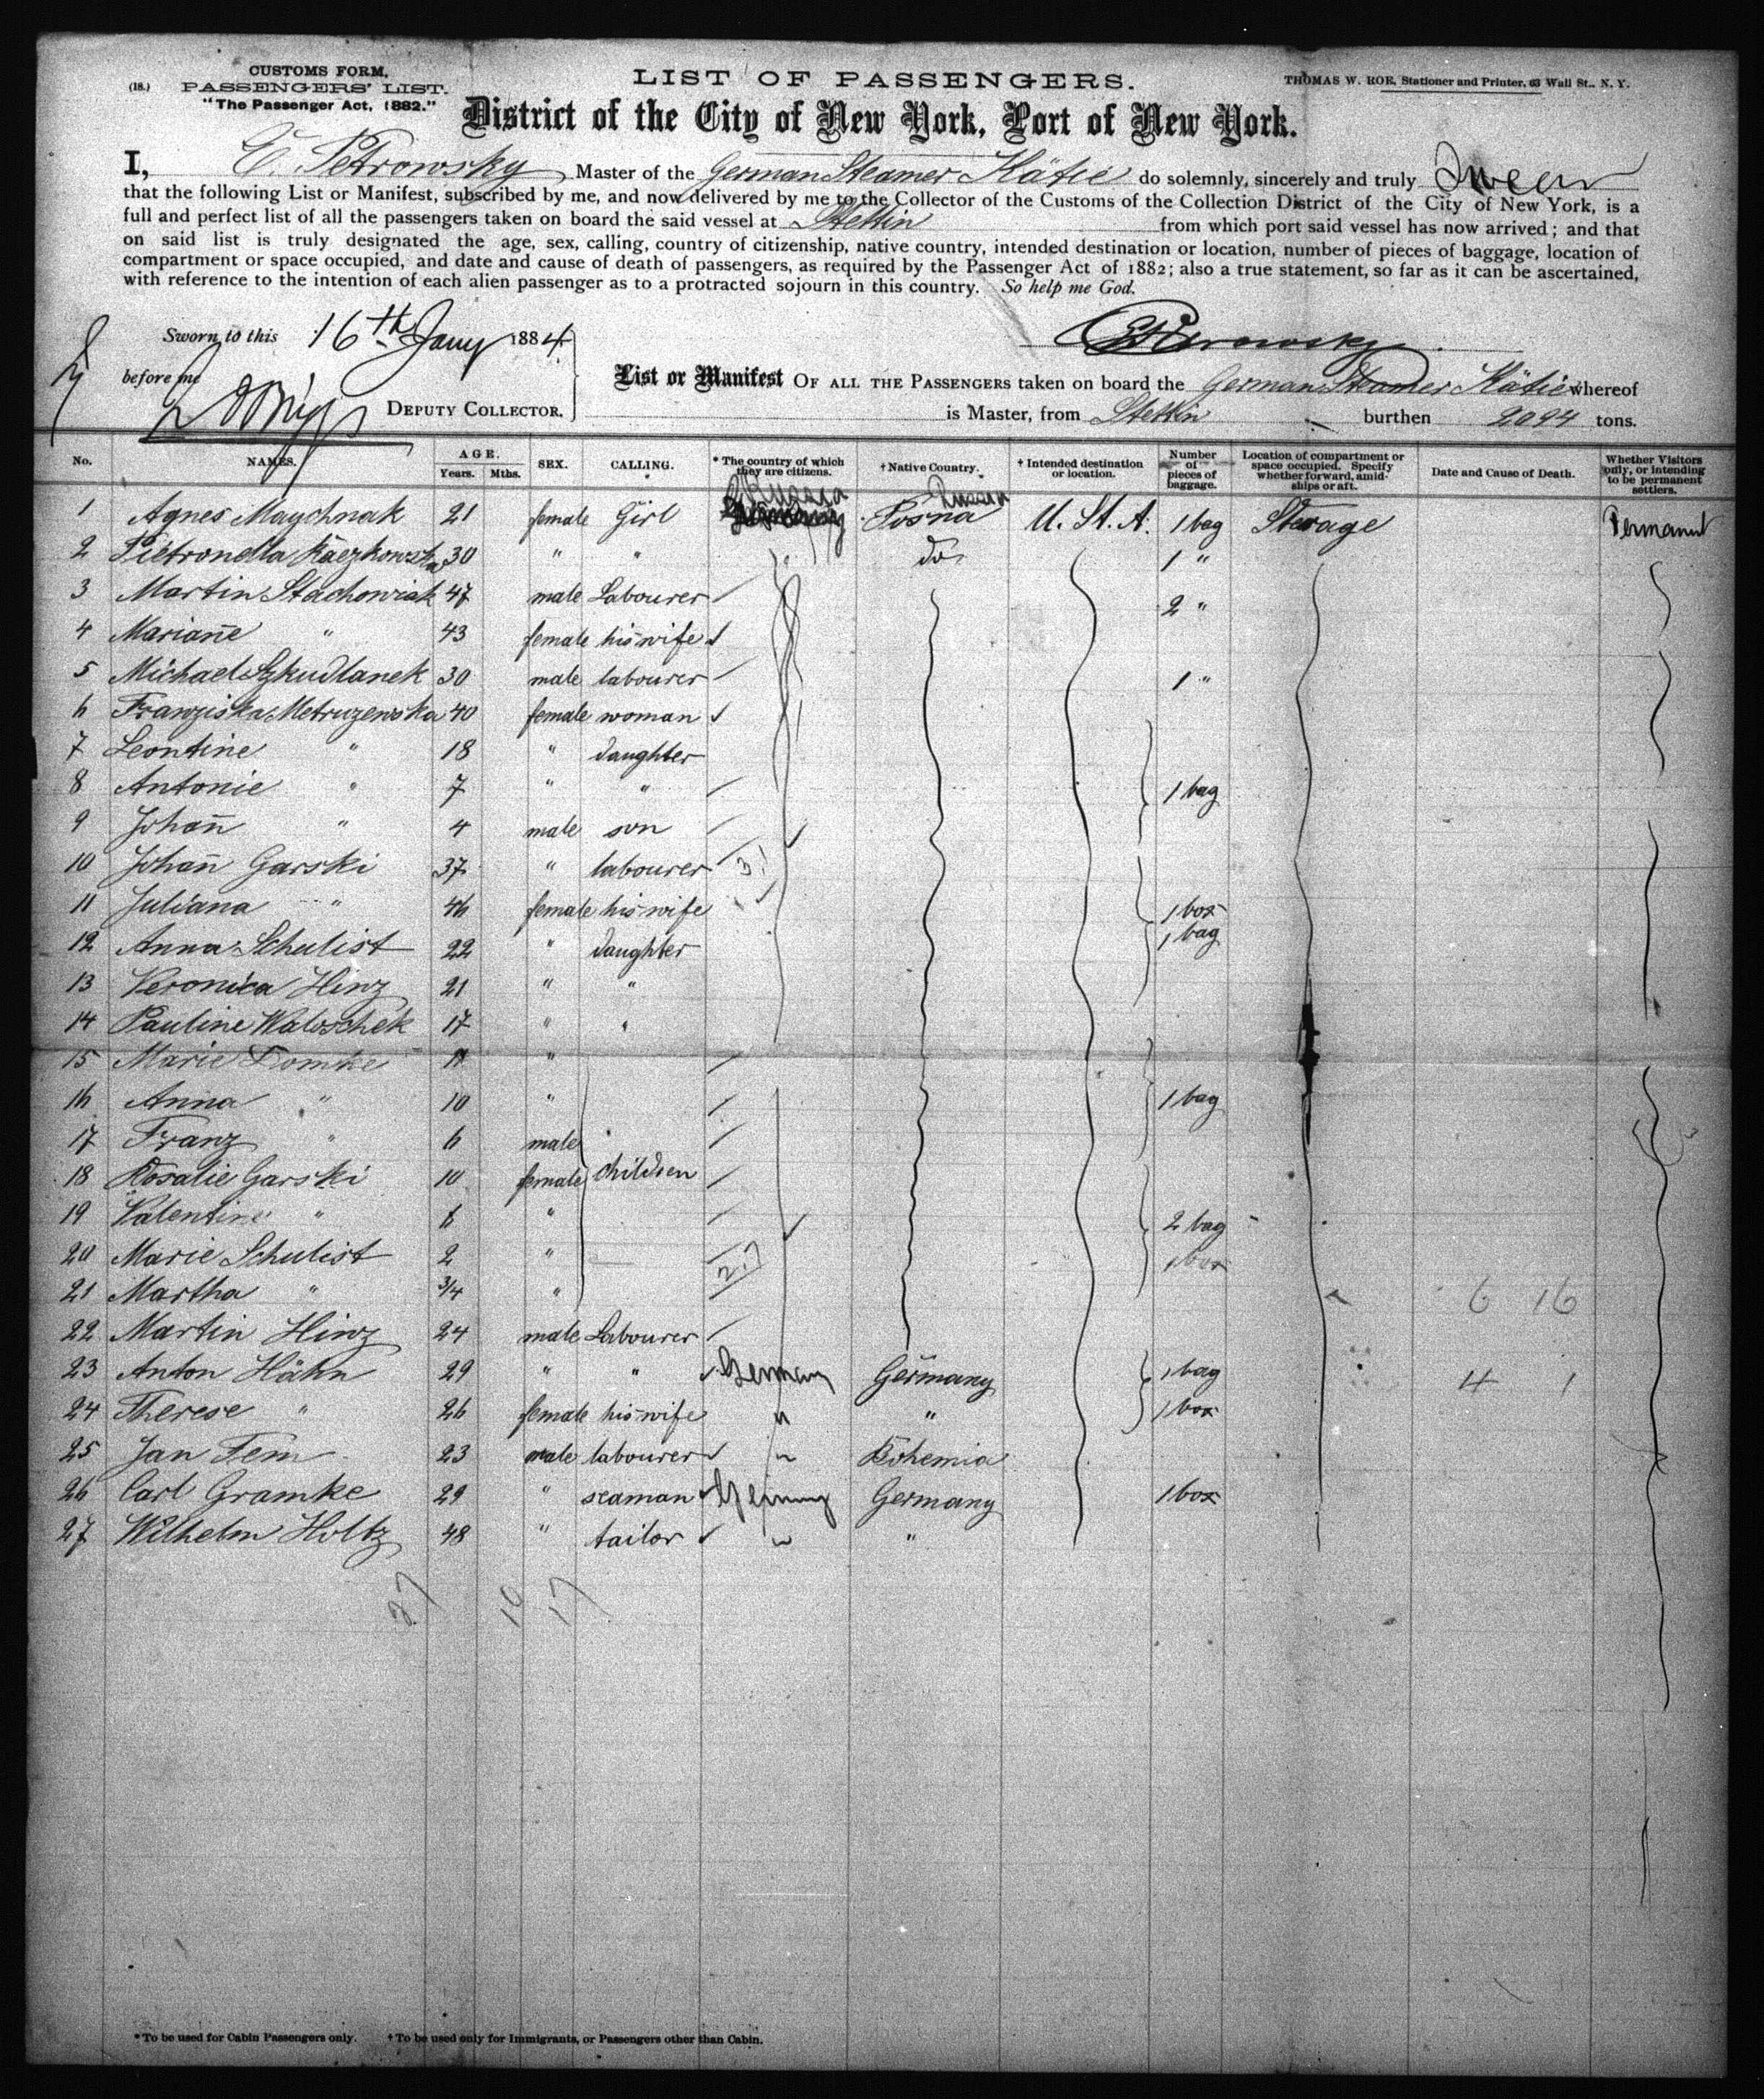 (18.)
CUSTOMS FORM,
PASSENGERS' LIST.
"The Passenger Act, 1882."
LIST OF PASSENGERS.
THOMAS W. ROE, Stationer and Printer, 63 Wall St., N. Y.
District of the City of New York, Port of New York.
I, E. Petrowsky, Master of the German Steamer Kätie do solemnly, sincerely and truly Swear
that the following List or Manifest, subscribed by me, and now delivered by me to the Collector of the Customs of the Collection District of the City of New York, is a
full and perfect list of all the passengers taken on board the said vessel at Stettin from which port said vessel has now arrived; and that
on said list is truly designated the age, sex, calling, country of citizenship, native country, intended destination or location, number of pieces of baggage, location of
compartment or space occupied, and date and cause of death of passengers, as required by the Passenger Act of 1882; also a true statement, so far as it can be ascertained,
with reference to the intention of each alien passenger as to a protracted sojourn in this country. So help me God.
Sworn to this 16th Jany 1884
E Petrowsky
before me
DEPUTY COLLECTOR.
List or Manifest OF ALL THE PASSENGERS taken on board the German Steamer Kätie whereof
is Master, from Stettin burthen 2094 tons.
No. NAMES. AGE. Years. Mths. SEX. CALLING. * The country of which they are citizens. † Native Country. † Intended destination or location. Number of pieces of baggage. Location of compartment or space occupied. Specify whether forward, amidships or aft. Date and Cause of Death. Whether Visitors only, or intending to be permanent settlers.
Russia Russia
1 Agnes Maychnak 21 female Girl Germany Posna U. St. A. 1 bag Sterage Permanent
2 Pietronella Kaczkowska 30 " " " do 1 "
3 Martin Stachowiak 47 male Labourer 2 "
4 Mariañe " 43 female his wife
5 Michael Szkudlanek 30 male labourer 1 "
6 Franziska Metruzewska 40 female woman
7 Leontine " 18 " daughter
8 Antonie " 7 " " 1 bag
9 Johañ " 4 male son
10 Johañ Garski 37 " labourer 3!
11 Juliana " 46 female his wife 1 box
12 Anna Schulist 22 " daughter 1 bag
13 Veronica Hinz 21 " "
14 Pauline Waloschek 17 " "
15 Marie Tomke 11 "
16 Anna " 10 " 1 bag
17 Franz " 6 male
18 Rosalie Garski 10 female children
19 Valentine " 6 " 2 bag
20 Marie Schulist 2 " 27 1 box
21 Martha " 3/4 " 6 16
22 Martin Hinz 24 male Labourer
23 Anton Hähn 29 " " Germany Germany 1 bag 4 1
24 Therese " 26 female his wife " " 1 box
25 Jan Fem 23 male labourer " Bohemia
26 Carl Gramke 29 " seaman Germany Germany 1 box
27 Wilhelm Holtz 48 " tailor " "
27 10 17
* To be used for Cabin Passengers only. † To be used only for Immigrants, or Passengers other than Cabin.